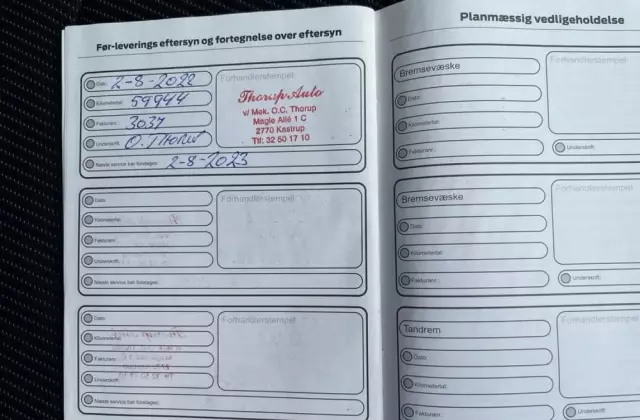 Før-leverings eftersyn og fortegnelse over eftersyn
Dato: 2-8-2022
Kilometertal: 59944
Fakturanr.: 3037
Underskrift:
Næste service bør foretages: 2-8-2023
Forhandlerstempel
Thorup Auto
v/ Mek. O.C. Thorup
Magle Allé 1 C
2770 Kastrup
Tlf: 32 50 17 10
Dato:
Kilometertal:
Fakturanr.:
Underskrift:
Næste service bør foretages:
Forhandlerstempel
Dato:
Kilometertal:
Fakturanr.:
Underskrift:
Næste service bør foretages:
Forhandlerstempel
Planmæssig vedligeholdelse
Bremsevæske
Dato:
Kilometertal:
Fakturanr.:
Forhandlerstempel
Underskrift:
Bremsevæske
Dato:
Kilometertal:
Fakturanr.:
Forhandlerstempel
Underskrift:
Tandrem
Dato:
Kilometertal:
Fakturanr.:
Forhandlerstempel
Underskrift: